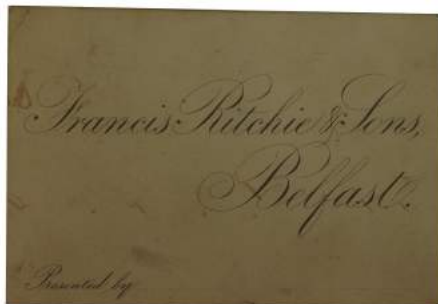 Francis Ritchie & Sons,
Belfast.
Presented by